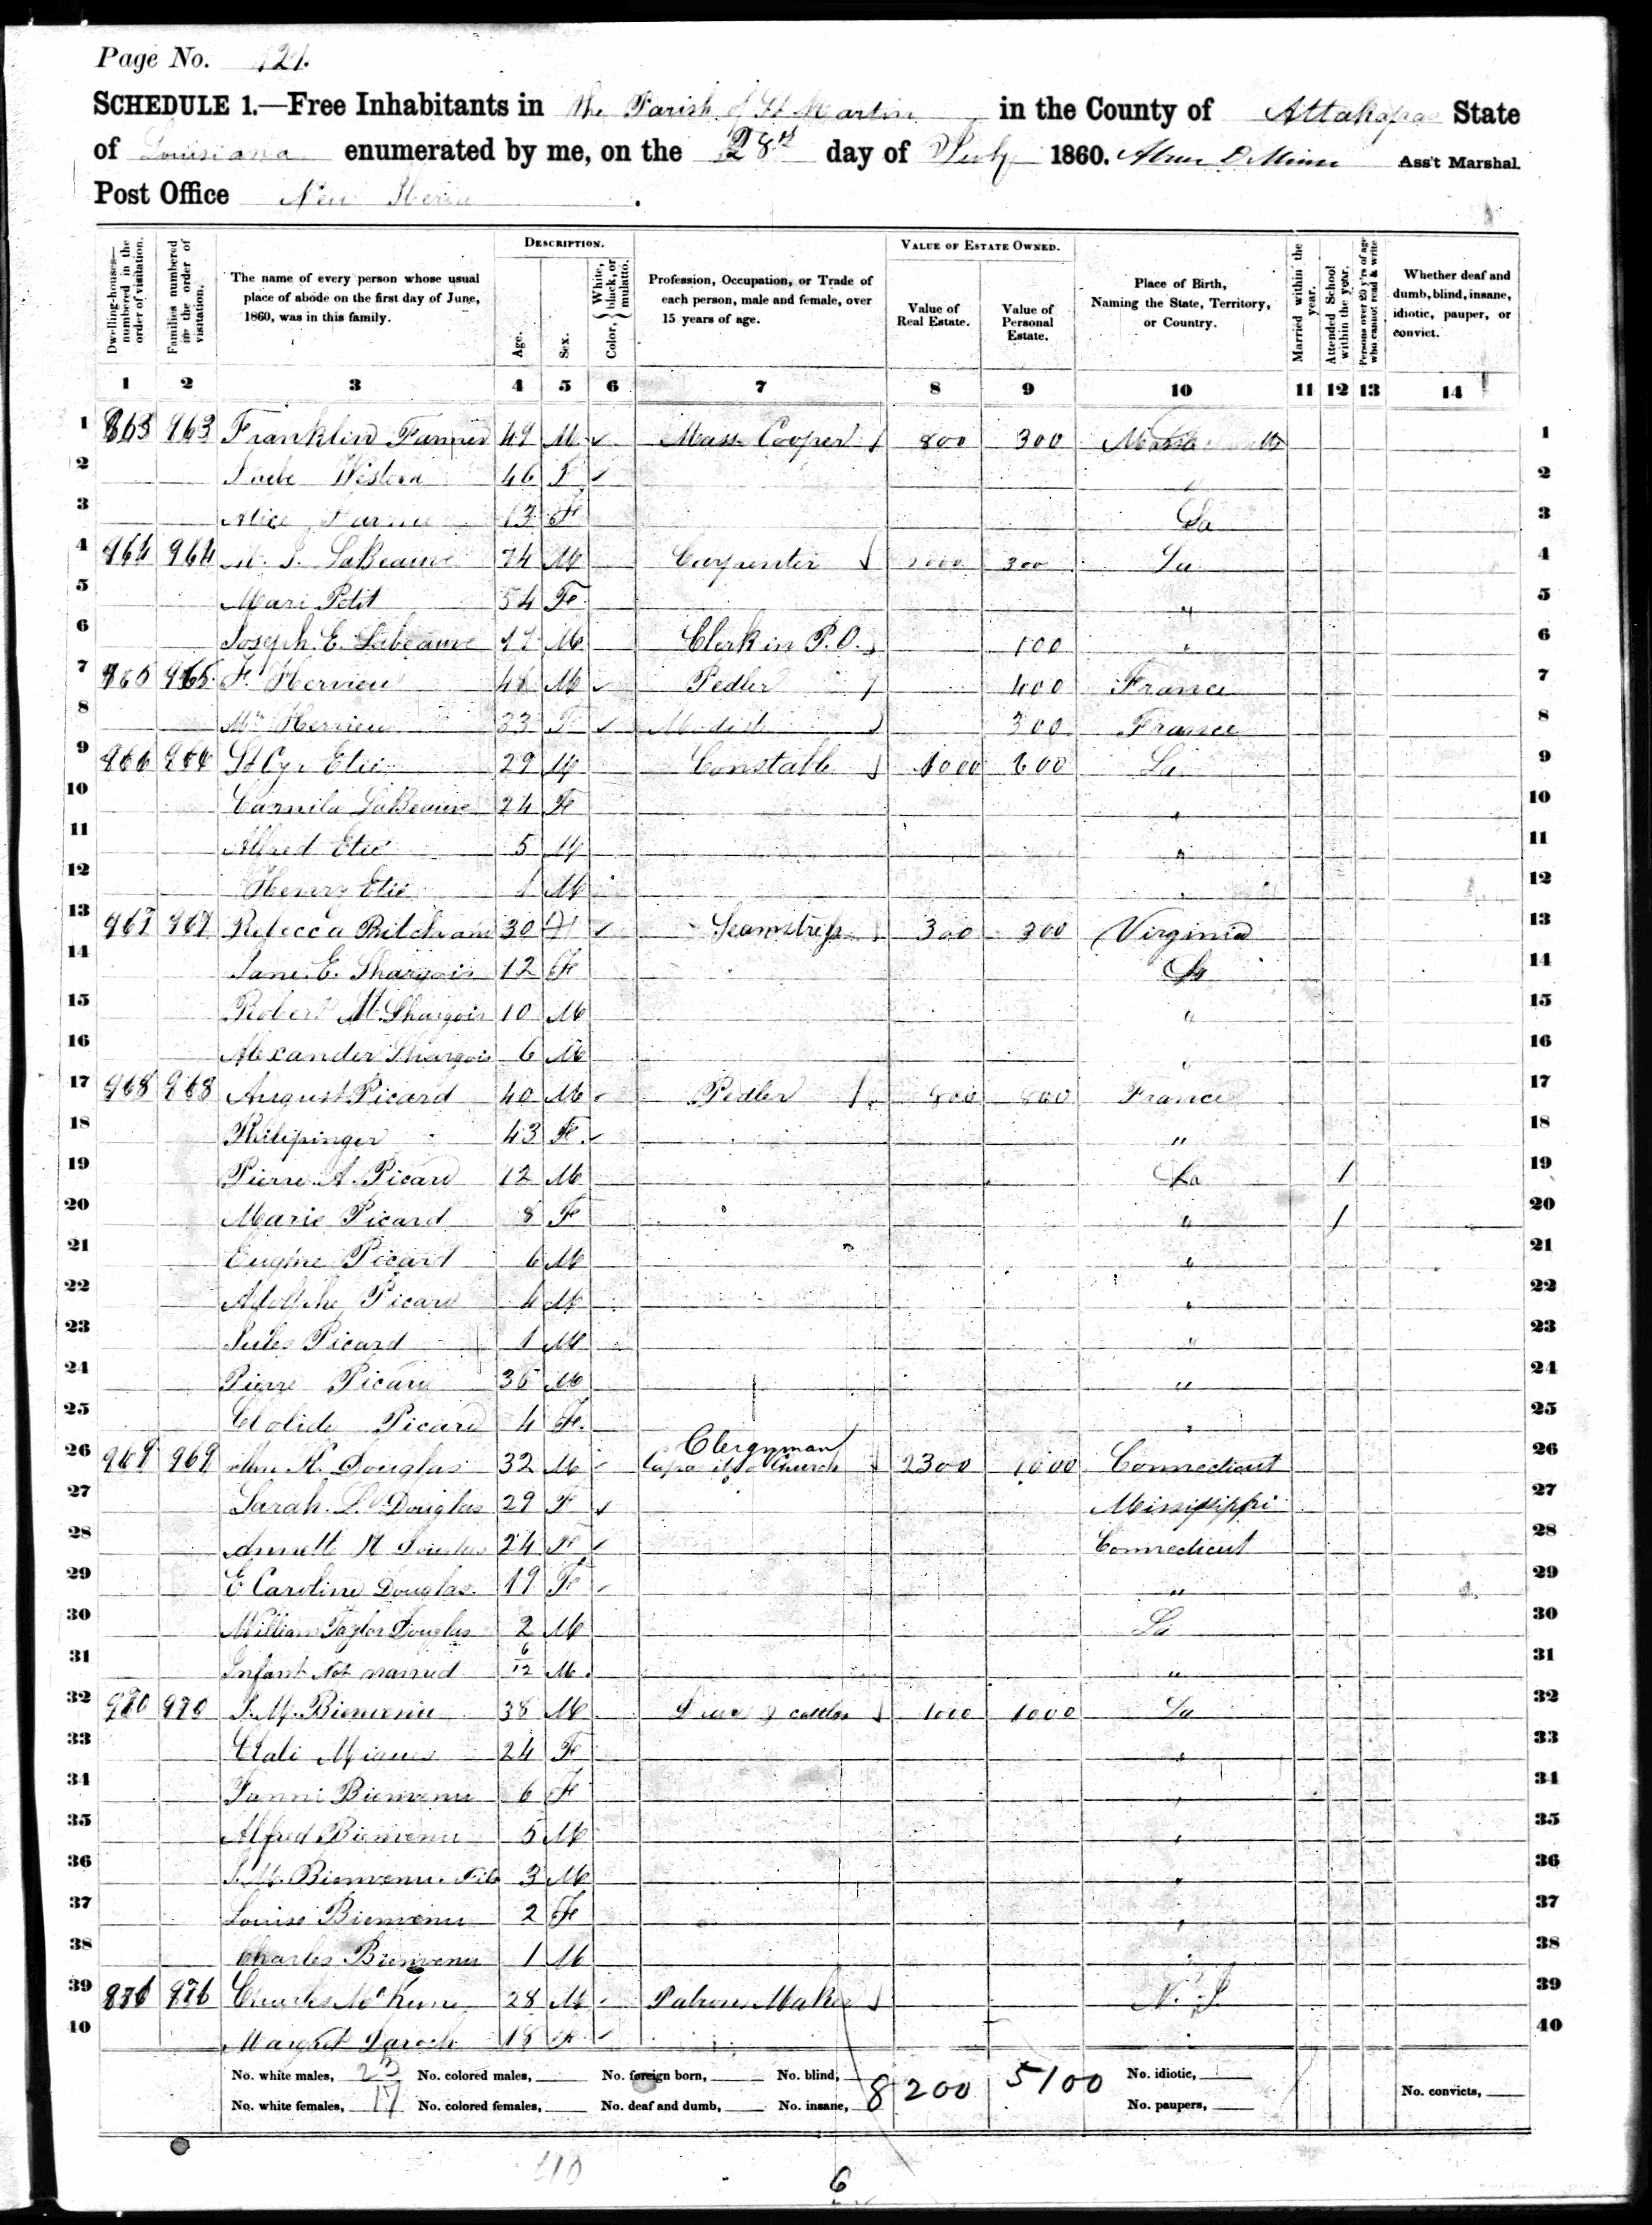 Page No. 121.
SCHEDULE 1.—Free Inhabitants in the Parish of St Martin in the County of Attakapas State
of Louisiana enumerated by me, on the 28th day of July 1860. Ass't Marshal.
Post Office New Iberia.
Dwelling-houses—numbered in the order of visitation.
Families numbered in the order of visitation.
The name of every person whose usual place of abode on the first day of June, 1860, was in this family.
DESCRIPTION.
Age.
Sex.
Color, { White, black, or mulatto.
Profession, Occupation, or Trade of each person, male and female, over 15 years of age.
VALUE OF ESTATE OWNED.
Value of Real Estate.
Value of Personal Estate.
Place of Birth, Naming the State, Territory, or Country.
Married within the year.
Attended School within the year.
Persons over 20 y'rs of age who cannot read & write
Whether deaf and dumb, blind, insane, idiotic, pauper, or convict.
1 2 3 4 5 6 7 8 9 10 11 12 13 14
1 963 Franklin Farmer 49 M Mass Cooper 800 300 1
2 46 F 2
3 Alice 13 Fe La 3
4 964 964 LaBeauve 74 M Carpenter 300 La 4
5 Mari Petit 54 Fe " 5
6 Joseph E. Labeauve 17 M Clerk in P.O. 100 " 6
7 965 965 F. Hervieu 48 M Pedler 400 France 7
8 Mrs Hervieu 33 F Modist 300 France 8
9 966 966 St Cyr Etie 29 M Constable 1000 600 La 9
10 Carmila LaBeauve 24 Fe " 10
11 Alfred Etie 5 M " 11
12 Henry Etie 1 M " 12
13 967 967 Rebecca 30 F Seamstress 300 300 Virginia 13
14 Jane E. 12 Fe La 14
15 Robert M. 10 M " 15
16 Alexander 6 M " 16
17 968 968 August Picard 40 M Pedler 800 800 France 17
18 Philipinger 43 Fe " 18
19 Pierre A. Picard 12 M La / 19
20 Marie Picard 8 Fe " / 20
21 Eugine Picard 6 M " 21
22 Adolphe Picard 4 M " 22
23 Jules Picard 1 M " 23
24 Pierre Picard 36 M " 24
25 Clolide Picard 4 Fe " 25
26 969 969 Douglas 32 M Clergyman Church 2300 1000 Connecticut 26
27 Sarah L. Douglas 29 F Missisippi 27
28 24 Fe Connecticut 28
29 E Caroline Douglas 19 Fe " 29
30 William Taylor Douglas 2 M La 30
31 Infant Not named 6/12 M " 31
32 970 970 Bienvenu 38 M cattle 1000 1000 La 32
33 24 Fe " 33
34 Fanni Bienvenu 6 Fe " 34
35 Alfred Bienvenu 5 M " 35
36 Bienvenu. Fils 3 M " 36
37 Louise Bienvenu 2 Fe " 37
38 Charles Bienvenu 1 M " 38
39 Charles 28 M Maker 39
40 Margret 18 Fe " 40
No. white males, 23 No. colored males, No. foreign born, No. blind, 8200 5100 No. idiotic,
No. white females, 17 No. colored females, No. deaf and dumb, No. insane, No. paupers, No. convicts,
410
6